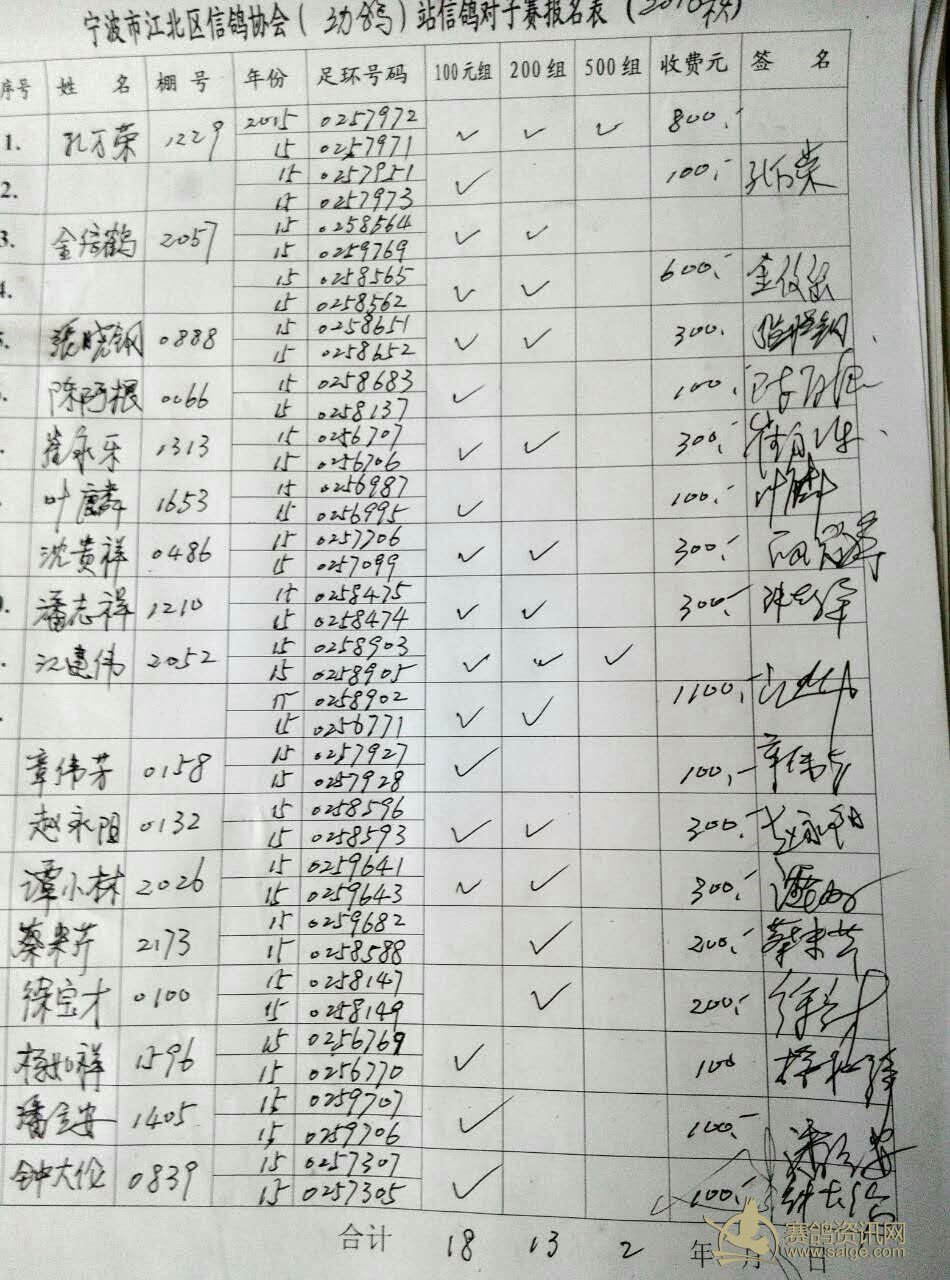 宁波市江北区信鸽协会( 功鸽 )站信鸽对子赛报名表 (2016秋)
序号 姓 名 棚 号 年份 足环号码 100元组 200组 500组 收费元 签 名
1. 孔万荣 1229 2015 0257972 ✓ ✓ ✓ 800.-
15 0257971
2. 15 0257951 ✓ 100.- 孔万荣
15 0257973
3. 金信鹤 2057 15 0258564 ✓ ✓
15 0259769
4. 15 0258565 ✓ ✓ 600.-
15 0258562
张晓钢 0888 15 0258651 ✓ ✓ 300.
15 0258652
陈阿根 0066 15 0258683 ✓ 100.-
15 0258137
崔永乐 1313 15 0256707 ✓ ✓ 300.-
15 0256706
叶麟 1653 15 0256987 ✓ 100.- 叶麟
15 0256995
沈贵祥 0486 15 0257706 ✓ ✓ 300.-
15 0257099
潘志祥 1210 15 0258475 ✓ ✓ 300.-
15 0258474
江建伟 2052 15 0258903 ✓ ✓ ✓
15 0258905
15 0258902 ✓ ✓ 1100.-
15 0256771
章伟芳 0158 15 0257927 ✓ 100.- 章伟芳
15 0257928
赵永阳 0132 15 0258596 ✓ ✓ 300.- 赵永阳
15 0258593
谭小林 2026 15 0259641 ✓ ✓ 300.-
15 0259643
蔡来芹 2173 15 0259682 ✓ 200.-
15 0258588
徐宝才 0100 15 0258147 ✓ 200.-
15 0258149
杨如祥 1596 15 0256769 ✓ 100
15 0256770
潘金安 1405 15 0259707 ✓ 100.-
15 0259706
钟大伦 0839 15 0257307 ✓ 100.-
15 0257305
合计 18 13 2 年 月 日
赛鸽资讯网
www.saige.com